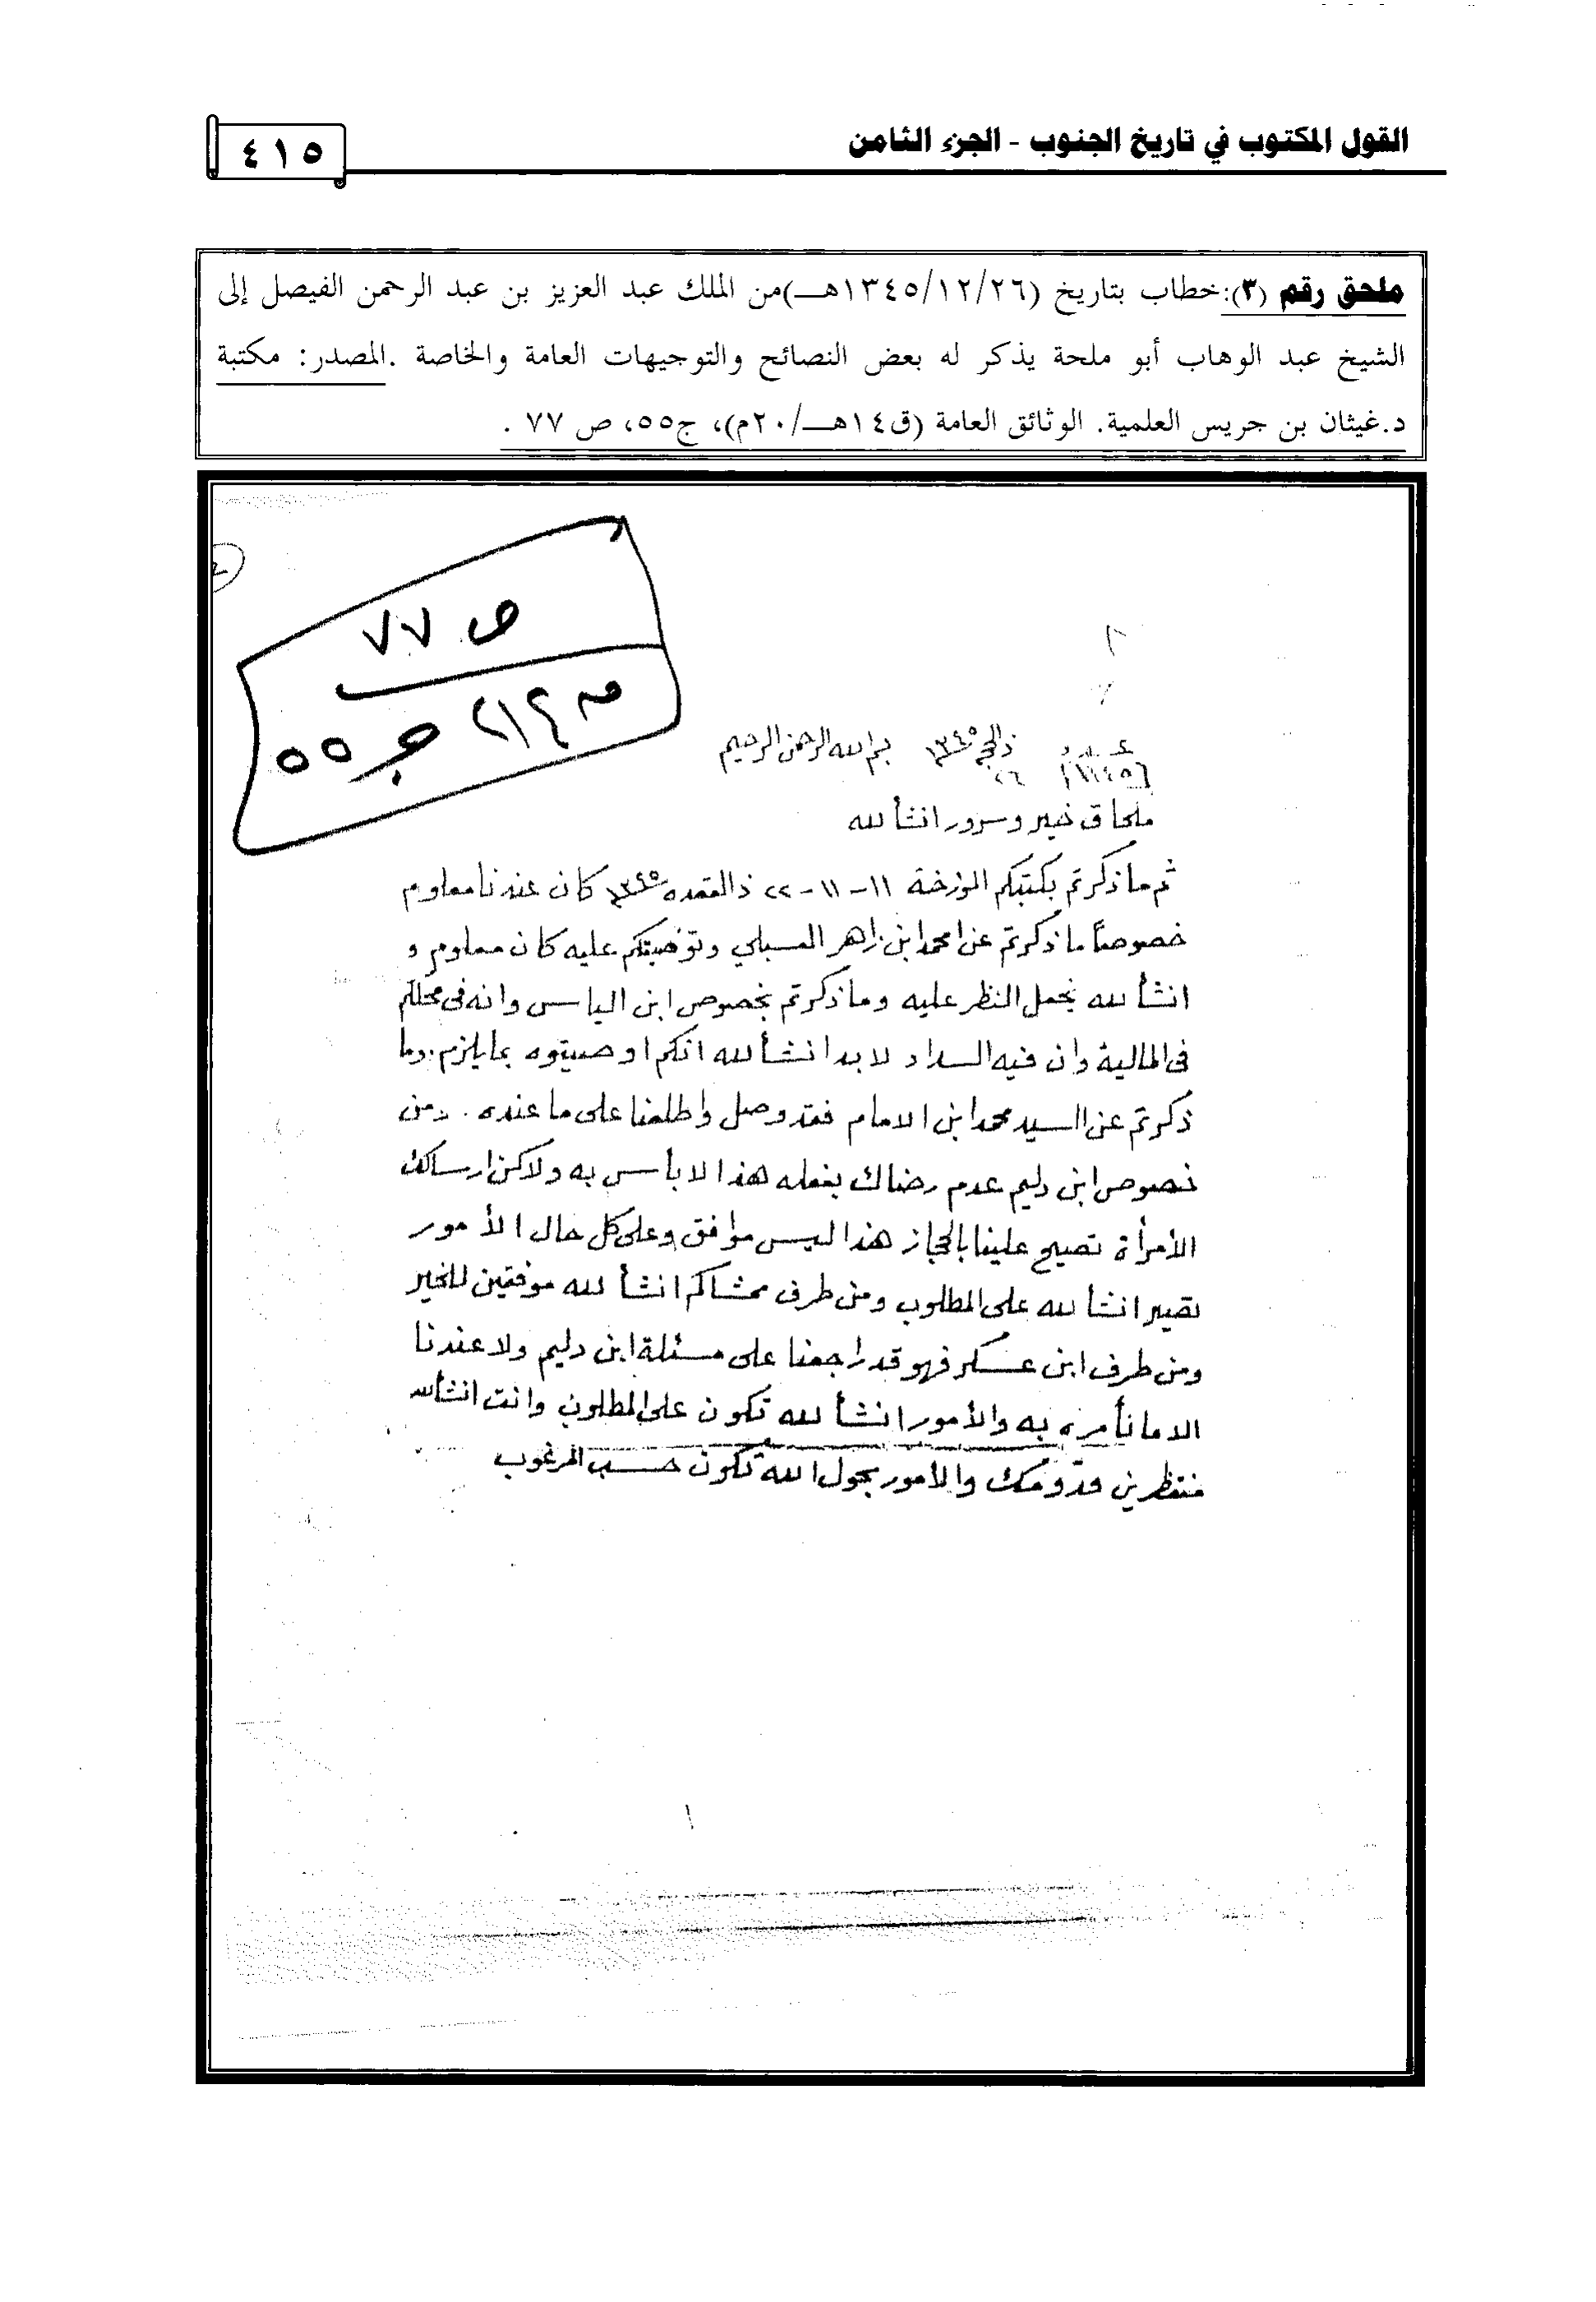 القول المكتوب في تاريخ الجنوب - الجزء الثامن
٤١٥
ملحق رقم (٣): خطاب بتاريخ (١٣٤٥/١٢/٢٦هـ) من الملك عبد العزيز بن عبد الرحمن الفيصل إلى
الشيخ عبد الوهاب أبو ملحة يذكر له بعض النصائح والتوجيهات العامة والخاصة .المصدر: مكتبة
د.غيثان بن جريس العلمية. الوثائق العامة (ق١٤هـ/٢٠م)، ج٥٥، ص ٧٧ .
ص ٧٧
ج ٥٥
بسم الله الرحمن الرحيم
٢٦ ذالحجه ١٣٤٥
عدد
ملحاق خير وسرور انشأ لله
ثم ما ذكرتم بكتبكم المورخة ١١-١١-٢٢ ذالقعده ١٣٤٥ كان عندنا معلوم
خصوصاً ما ذكرتم عن امحمد ابن زاهر المسبلي وتوصيتكم عليه كان معلوم و
انشأ لله نجمل النظر عليه وما ذكرتم بخصوص ابن الياس وانه في محلكم
في المالية وان فيه السداد لا بد انشأ لله انكم اوصيتوه بما يلزم. وما
ذكرتم عن السيد محمد ابن الامام فقد وصل واطلعنا على ما عنده. ومن
خصوص ابن دليم عدم رضاك بفعله هذا لا بأس به ولاكن ارسالك
الأمرأة تصيح علينا بالحجاز هذا ليس موافق وعلى كل حال الأمور
تصير انشأ لله على المطلوب ومن طرف ممشاكم انشأ لله موفقين للخير
ومن طرف ابن عسكر فهو قد راجعنا على مسئلة ابن دليم ولا عندنا
الا ما نأمره به والأمور انشأ لله تكون على المطلوب وانت انشألله
منتظرين قدومك والامور بحول الله تكون حسب المرغوب